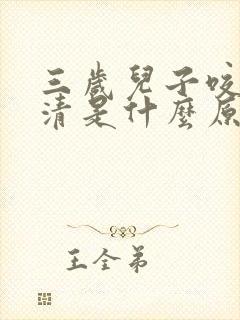 三歲兒子咬
清是什麼原
王全弟